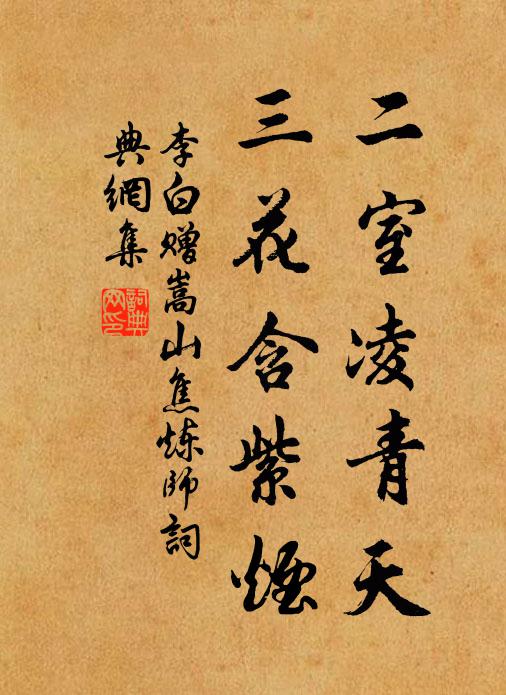 二室凌青天
三花含紫煙
李白贈嵩山焦炼師詞
典網集
詞典
网印